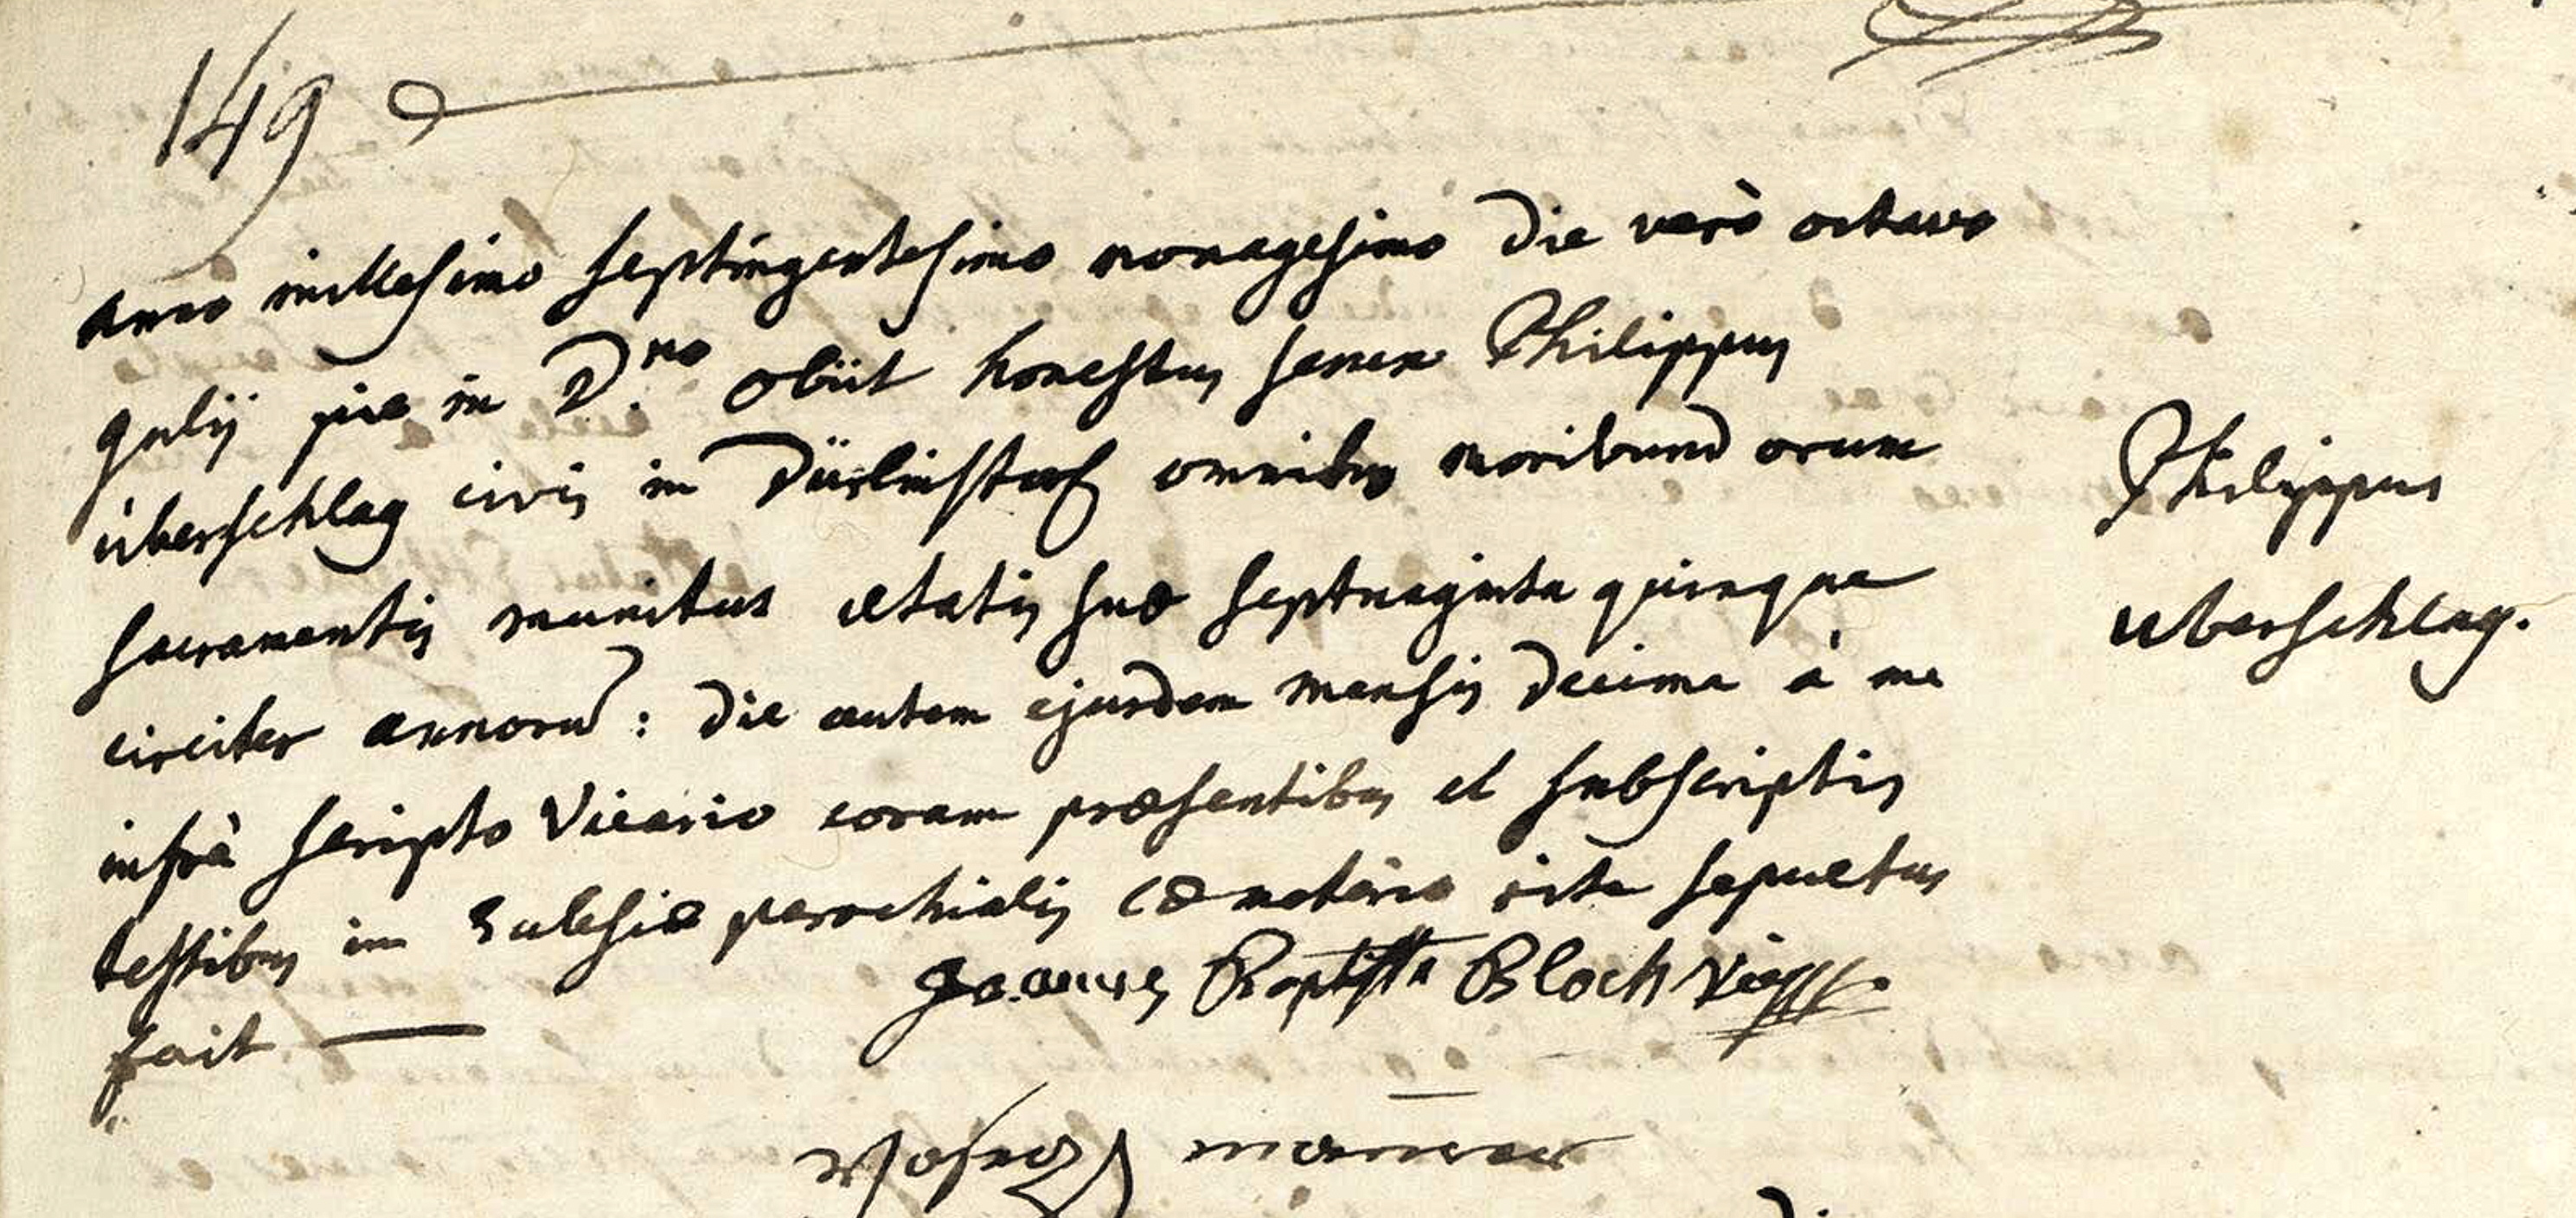 149
anno millesimo septingentesimo nonagesimo die verò octavo
Julij pie in D.no obiit honestus senex Philippus
überschlag civis in Dürlinstorf omnibus moribundorum
sacramentis munitus ætatis suæ septuaginta quinque
circiter annorū: die autem ejusdem mensis decima à me
infrà scripto Vicario coram præsentibus et subscriptis
testibus in Eclesiæ parochialis cœmeterio rite sepultus
fuit —
Philippus
uberschlag.
Joannes Baptista Bloch vic